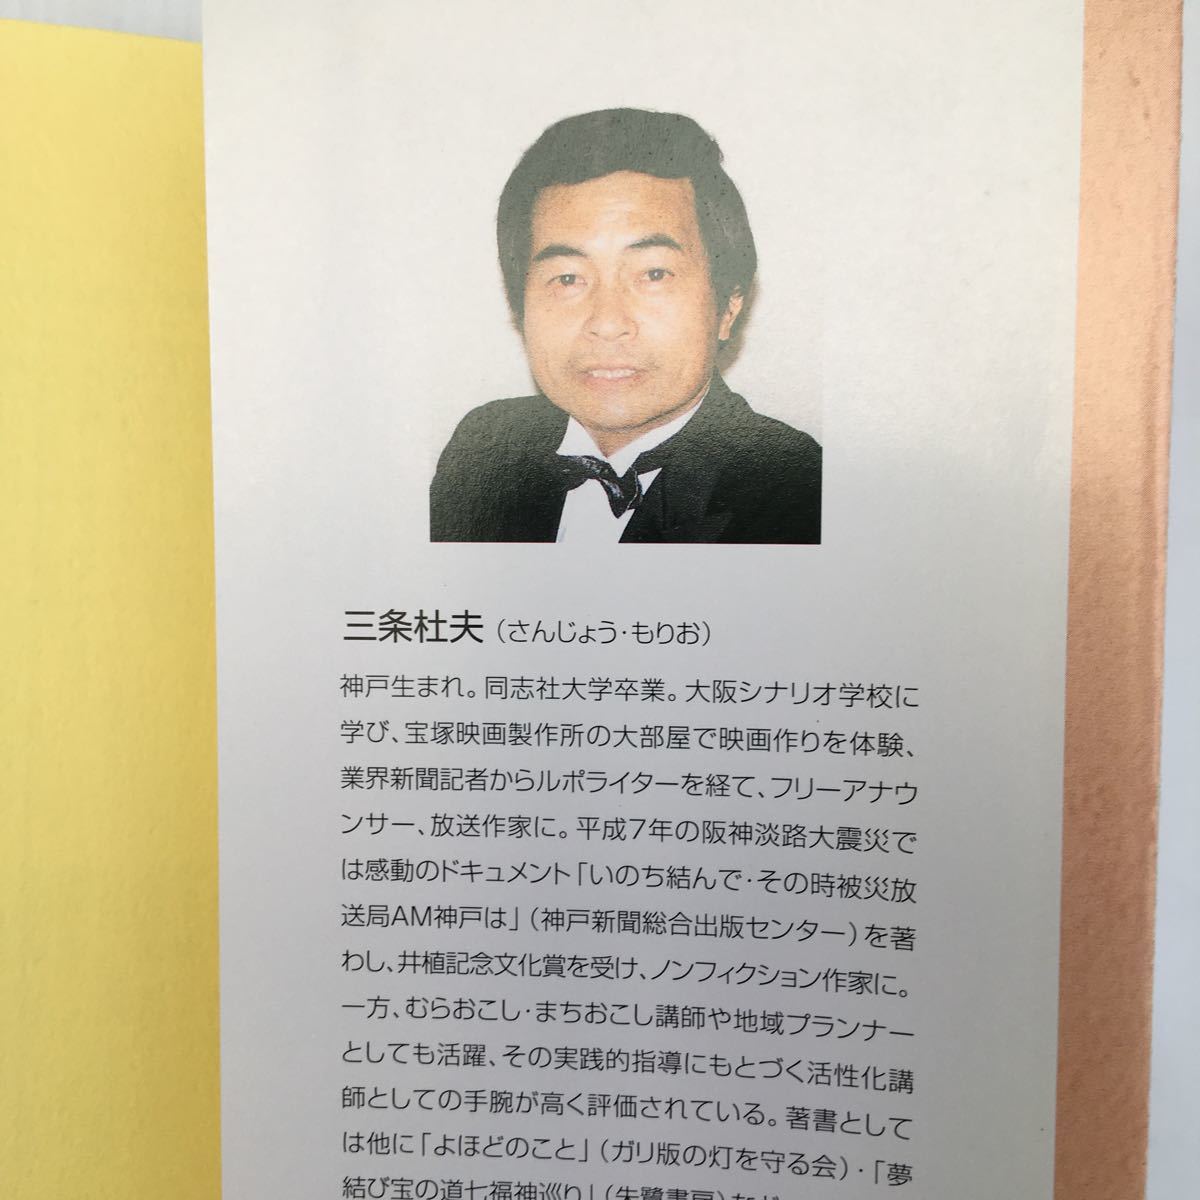 三条杜夫（さんじょう・もりお）
神戸生まれ。同志社大学卒業。大阪シナリオ学校に
学び、宝塚映画製作所の大部屋で映画作りを体験、
業界新聞記者からルポライターを経て、フリーアナウ
ンサー、放送作家に。平成7年の阪神淡路大震災で
は感動のドキュメント「いのち結んで・その時被災放
送局AM神戸は」（神戸新聞総合出版センター）を著
わし、井植記念文化賞を受け、ノンフィクション作家に。
一方、むらおこし・まちおこし講師や地域プランナー
としても活躍、その実践的指導にもとづく活性化講
師としての手腕が高く評価されている。著書として
は他に「よほどのこと」（ガリ版の灯を守る会）・「夢
結び宝の道七福神巡り」（朱鷺書房）など